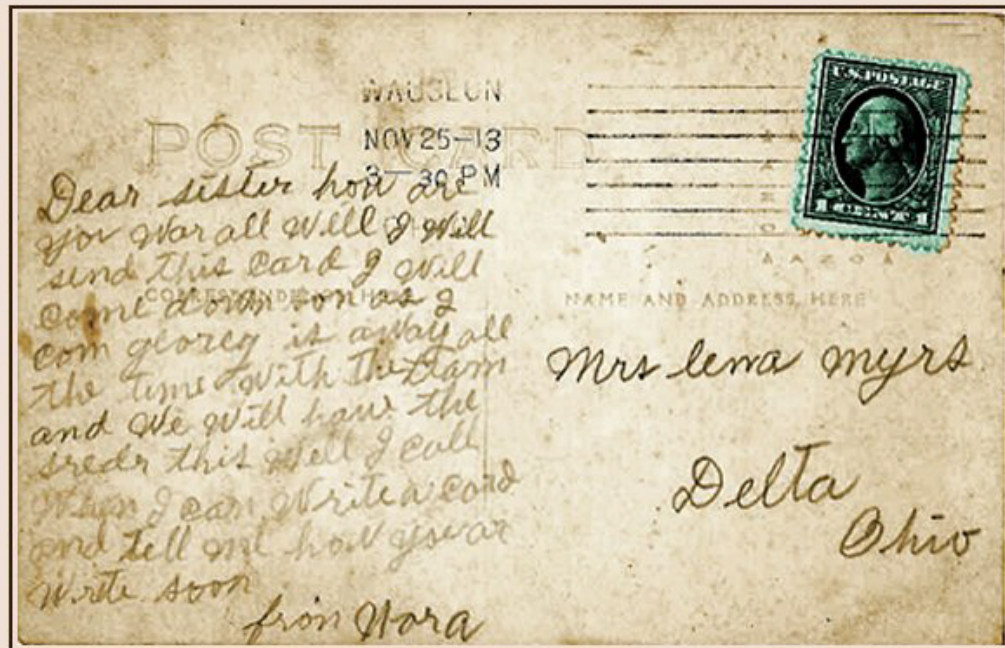 WAUSEON
NOV 25-13
3-30 PM
U.S. POSTAGE
1 CENT 1
POST CARD
CORRESPONDENCE HERE
NAME AND ADDRESS HERE
Dear sister how are
you war all well I will
send this card I will
come down son as I
com is away all
the time with the team
and we will have the
this well I call
when I can write a card
and tell me how you ar
write soon
from Nora
Mrs lena myrs
Delta
Ohio